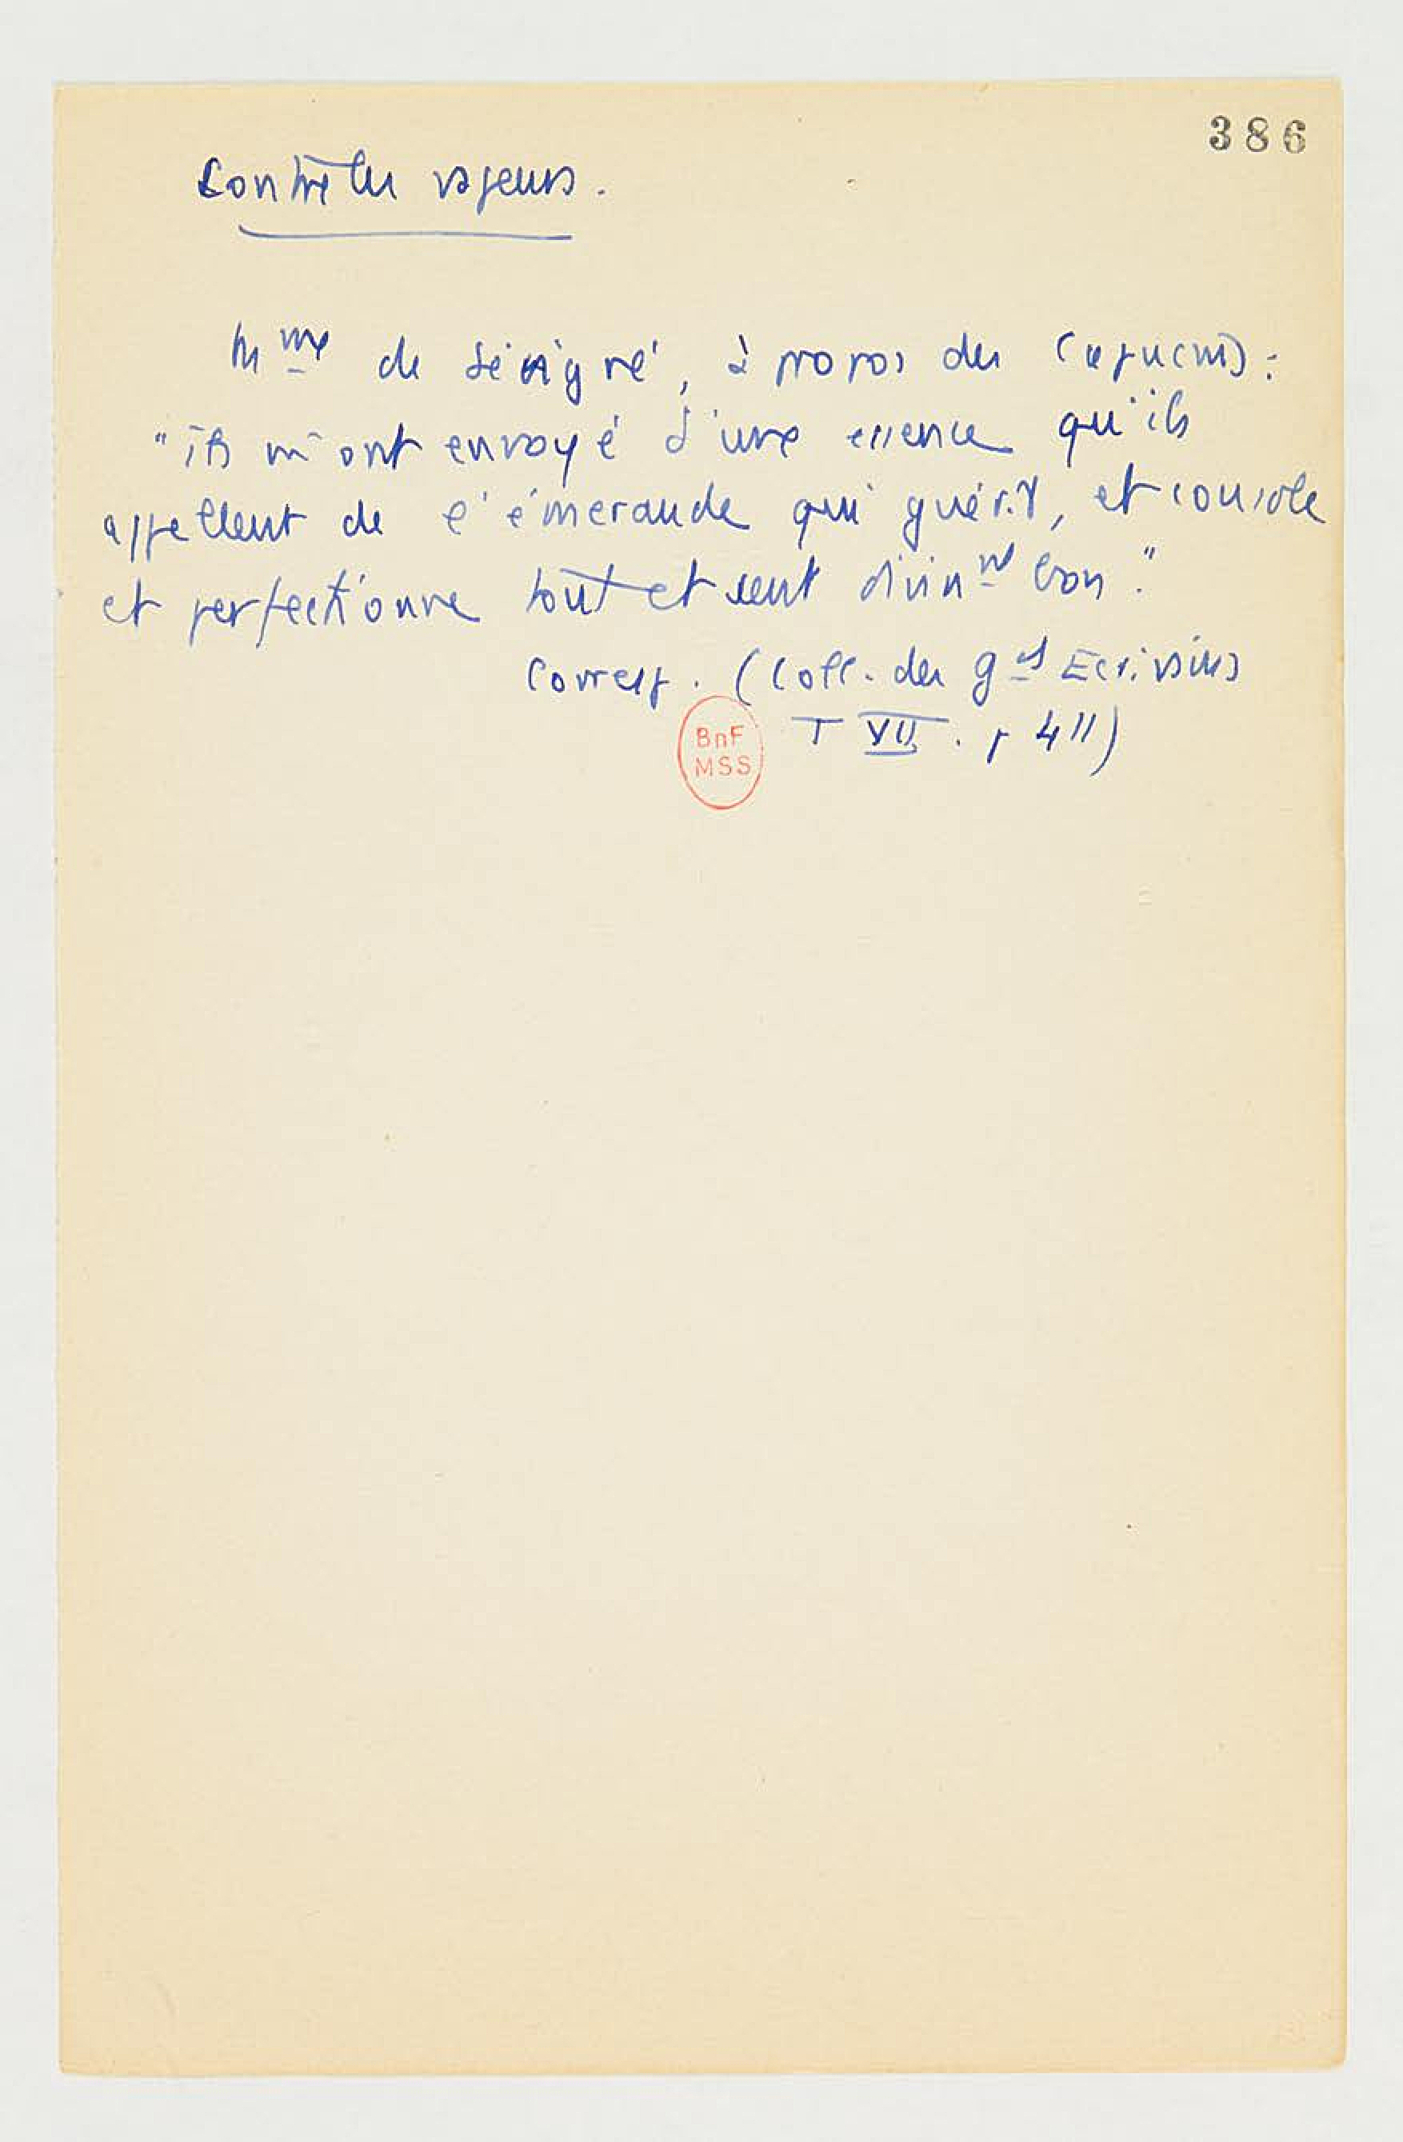 386
Contre les vapeurs.
Mme de Sévigné, à propos des Capucins :
"ils m'ont envoyé d'une essence qu'ils
appellent de l'émeraude qui guérit, et console
et perfectionne tout et sent divinnt bon."
Corresp. (Coll. des gds Ecrivains
T VII. p 411)
BnF
MSS